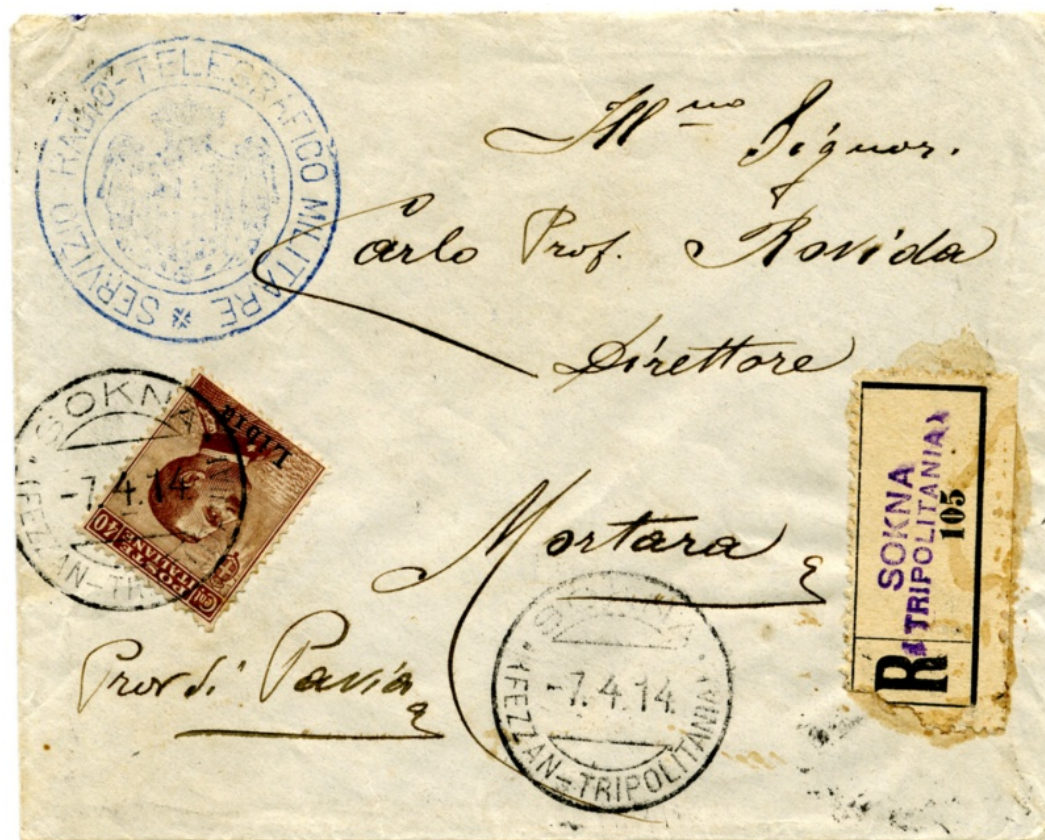 SERVIZIO RADIO-TELEGRAFICO MILITARE
Ill.mo Signor.
Carlo Prof. Rovida
Direttore
Mortara
Prov di Pavia
SOKNA
-7.4.14
(FEZZAN-TRIPOLITANIA)
Libia
POSTE ITALIANE
CENT 40
SOKNA
-7.4.14
(FEZZAN-TRIPOLITANIA)
R
SOKNA
(TRIPOLITANIA)
105